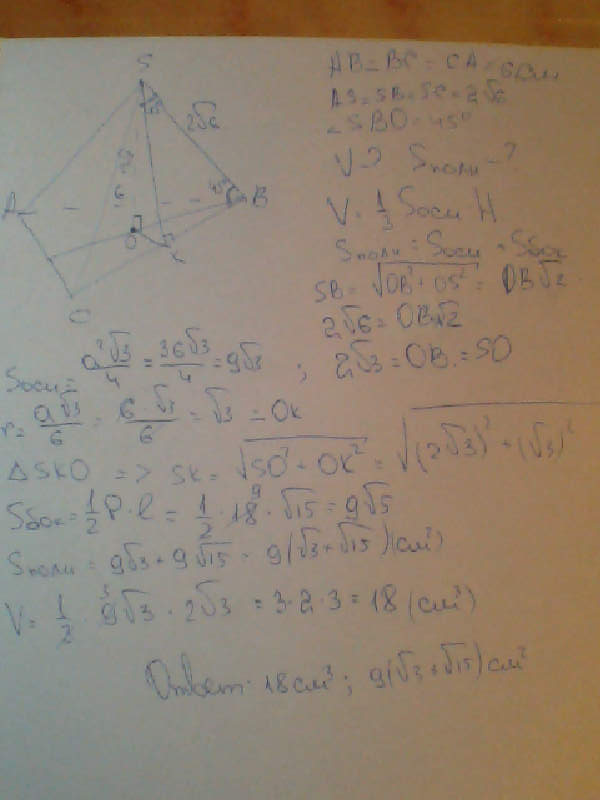 S
2√6
A
6
45°
B
O
K
C
AB = BC = CA = 6см
AS = SB = SC = 2√6
∠SBO = 45°
V-? Sполн -?
V = 1/3 Sосн H
Sполн = Sосн + Sбок
SB = √(OB² + OS²) = OB√2
2√6 = OB√2
Sосн = a²√3/4 = 36√3/4 = 9√3 ; 2√3 = OB = SO
r = a√3/6 = 6·√3/6 = √3 = OK
△SKO => SK = √(SO² + OK²) = √((2√3)² + (√3)²)
Sбок = 1/2 P·l = 1/2 · 18 · √15 = 9√5
Sполн = 9√3 + 9√15 = 9(√3 + √15)(см²)
V = 1/3 · 9√3 · 2√3 = 3·2·3 = 18 (см³)
Ответ: 18 см³; 9(√3 + √15) см²